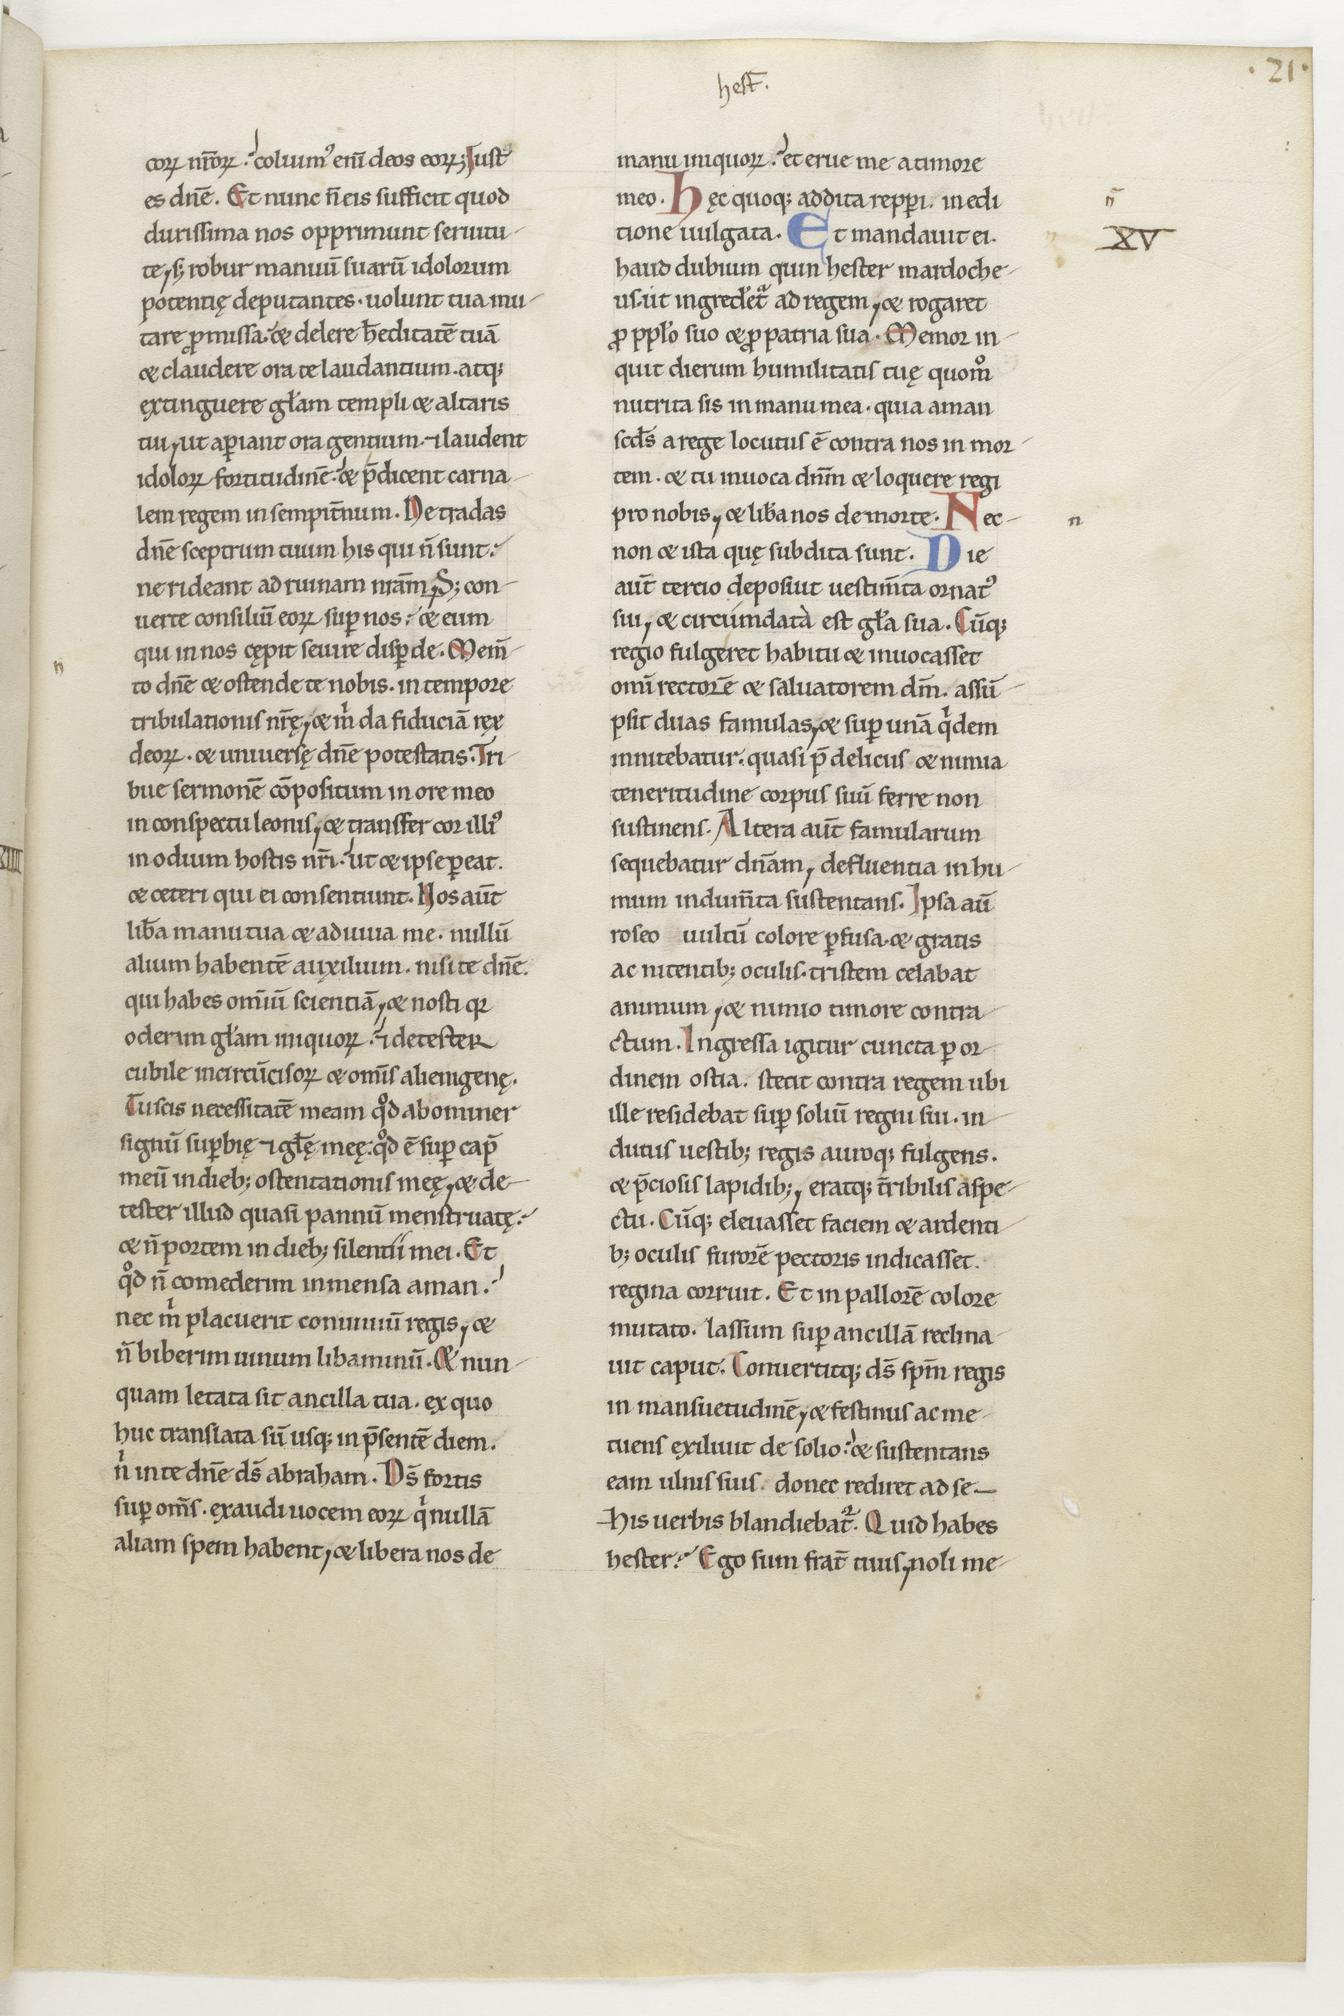 hest̄.
·21·
eoꝝ nr̄oꝝ. coluim᷒ enī deos eoꝝ; Iust᷒
es dn̄e. Et nunc n̄ eis sufficit quod
durissima nos opprimunt seruitu-
te, sꝫ robur manuū suarū idolorum
potentię deputantes. uolunt tua mu-
tare ꝓmissa. & delere h̄editatē tuā
& claudere ora te laudantium. atqꝫ
extinguere gl̄am templi & altaris
tui, ut aꝑiant ora gentium. ⁊ laudent
idoloꝝ fortitudinē. & p̄dicent carna-
lem regem in sempit̄num. Ne tradas
dn̄e sceptrum tuum his qui n̄ sunt.
ne rideant ad ruinam nr̄am, Sꝫ con-
uerte consiliū eoꝝ suꝑ nos. & eum
qui in nos cępit seuire disꝑde. Mem̄-
to dn̄e & ostende te nobis. in tempore
tribulationis nr̄ę, & m̊ da fiduciā rex
deoꝝ. & uniuersę dn̄e potestatis. Tri-
bue sermonē cōpositum in ore meo
in conspectu leonis, & transfer cor illi᷒
in odium hostis nr̄i. ut & ipse ꝑeat.
& ceteri qui ei consentiunt. Nos aūt
lib̄a manu tua & adiuua me. nullū
alium habentē auxilium. nisi te dn̄e.
qui habes omīū scientiā, & nosti qꝛ
oderim gl̄am iniquoꝝ. ⁊ detester
cubile incircūcisoꝝ & omīs alienigenę.
Tu scis necessitatē meam qd̊ abominer
signū suꝑbię ⁊ gl̄ę meę. qd̊ ē suꝑ cap̄
meū in diebꝫ ostentationis meę, & de-
tester illud quasi pannū menstruatę.
& n̄ portem in diebꝫ silentii mei. Et
qd̊ n̄ comederim in mensa aman.
nec m̊ placuerit conuiuiū regis, &
n̄ biberim uinum libaminū. & nun-
quam letata sit ancilla tua. ex quo
huc translata sū usqꝫ in p̄sentē diem.
n̊ in te dn̄e ds̄ abraham. Ds̄ fortis
suꝑ om̄s. exaudi uocem eoꝝ q̊ nullā
aliam spem habent, & libera nos de
manu iniquoꝝ. et erue me a timore
meo. Hęc quoqꝫ addita repꝑi. in edi
tione uulgata. Et mandauit ei.
haud dubium quin hester mardoche-
us. ut ingredet᷑ ad regem, & rogaret
ꝓ ppl̄o suo & ꝓ patria sua. Memor in-
quit dierum humilitatis tuę quom̊
nutrita sis in manu mea. quia aman
scd̄s a rege locutus ē contra nos in mor-
tem. & tu inuoca dn̄m & loquere regi
pro nobis, & lib̄a nos de morte. Nec-
non & ista quę subdita sunt. Die
aūt tercio deposuit uestim̄ta ornat᷒
sui, & circumdata est gl̄a sua. Cūqꝫ
regio fulgeret habitu & inuocasset
omī rectorē & saluatorem dm̄. assū-
psit duas famulas, & suꝑ unā q̊dem
innitebatur. quasi p̄ deliciis & nimia
teneritudine corpus suū ferre non
sustinens. Altera aūt famularum
sequebatur dn̄am, defluentia in hu-
mum indum̄ta sustentans. Ipsa aū
roseo uultū colore ꝑfusa. & gratis
ac nitentibꝫ oculis. tristem celabat
animum, & nimio timore contra-
ctum. Ingressa igitur cuncta ꝑ or-
dinem ostia. stetit contra regem ubi
ille residebat suꝑ soliū regni sui. in-
dutus uestibꝫ regis auroqꝫ fulgens.
& p̄ciosis lapidibꝫ, eratqꝫ t̄ribilis aspe-
ctu. Cūqꝫ eleuasset faciem & ardenti-
bꝫ oculis furorē pectoris indicasset.
regina corruit. Et in pallorē colore
mutato. lassum suꝑ ancillā reclina-
uit caput. Conuertitqꝫ ds̄ spm̄ regis
in mansuetudinē, & festinus ac me-
tuens exiliuit de solio. & sustentans
eam ulnis suis. donec rediret ad se-
his uerbis blandiebat᷑. Quid habes
hester. Ego sum frat̄ tuus, noli me-
n̄
XV
n
n
XIIII